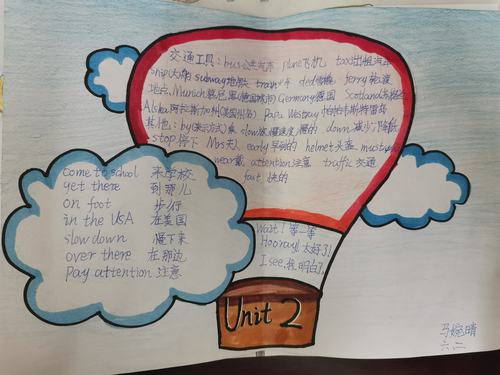 交通工具：bus公共汽车 plane飞机 taxi出租汽车
ship(大)船 subway地铁 train火车 sled雪橇 ferry轮渡
地点：Munich慕尼黑(德国城市) Germany德国 Scotland
Alska阿拉斯加州(美国州名) Papa Westray 帕帕韦斯特雷岛
其他：by(表示方式)乘 slow(使)慢速度)慢的 down 减少;降低
stop 停下 Mrs夫人 early早到的 helmet头盔 must必须
wear戴 attention注意 traffic 交通
fast 快的
come to school 来学校
get there 到那儿
on foot 步行
in the USA 在美国
slow down 慢下来
over there 在那边
Pay attention 注意
Wait! 等一等
Hooray! 太好了!
I see.我明白了.
Unit 2
马婉晴
六、二